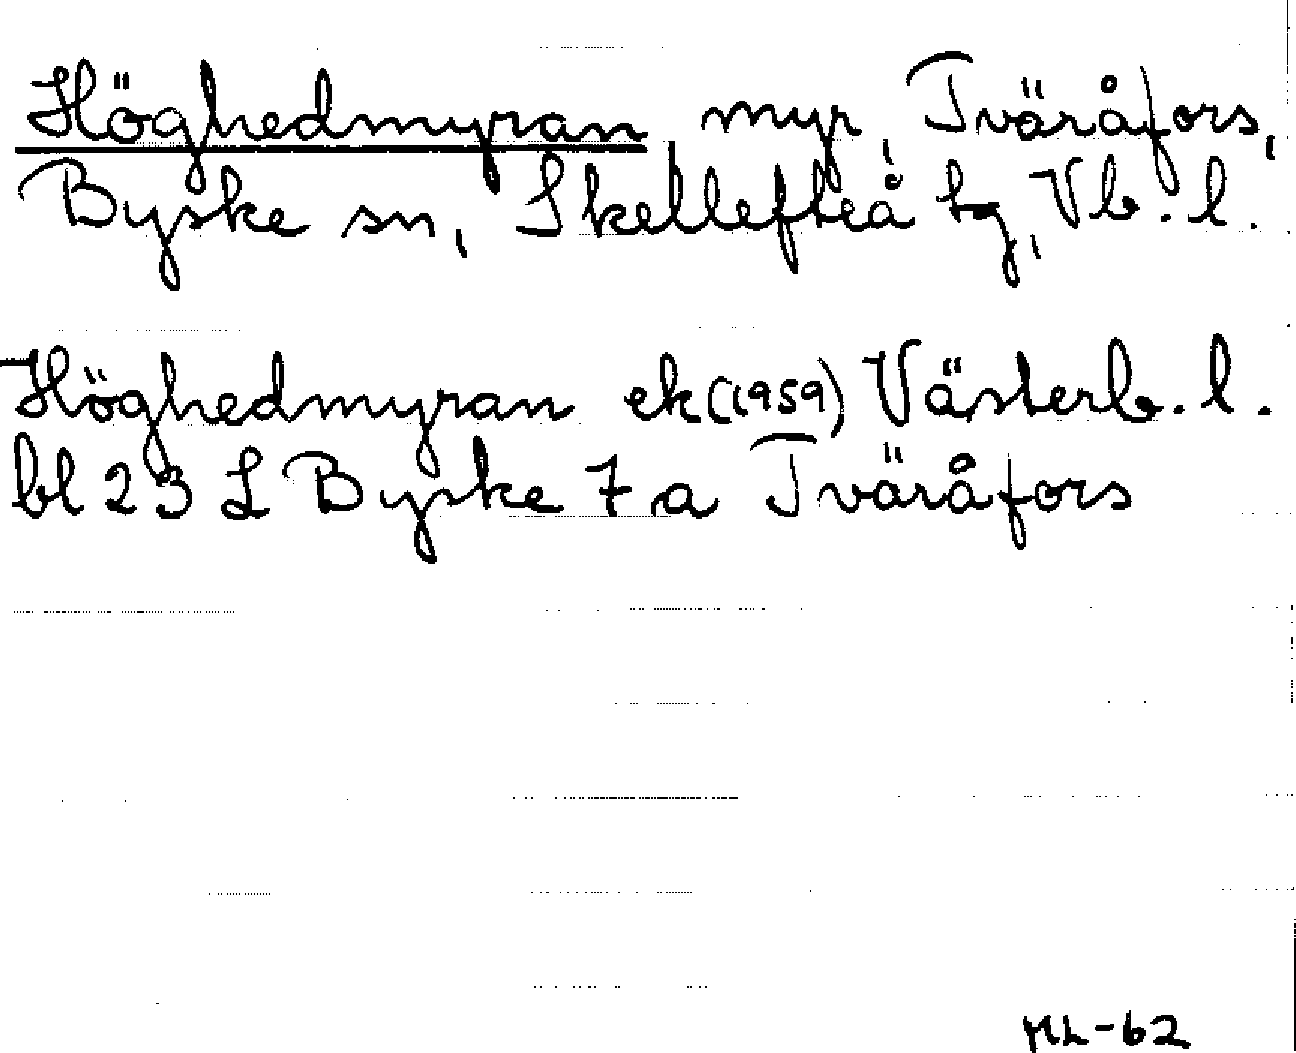 Höghedmyran, myr, Tväråfors,
Byske sn, Skellefteå tg, Vb. l.
Höghedmyran ek (1959) Västerb. l.
bl 23 L Byske 7 a Tväråfors
ML-62